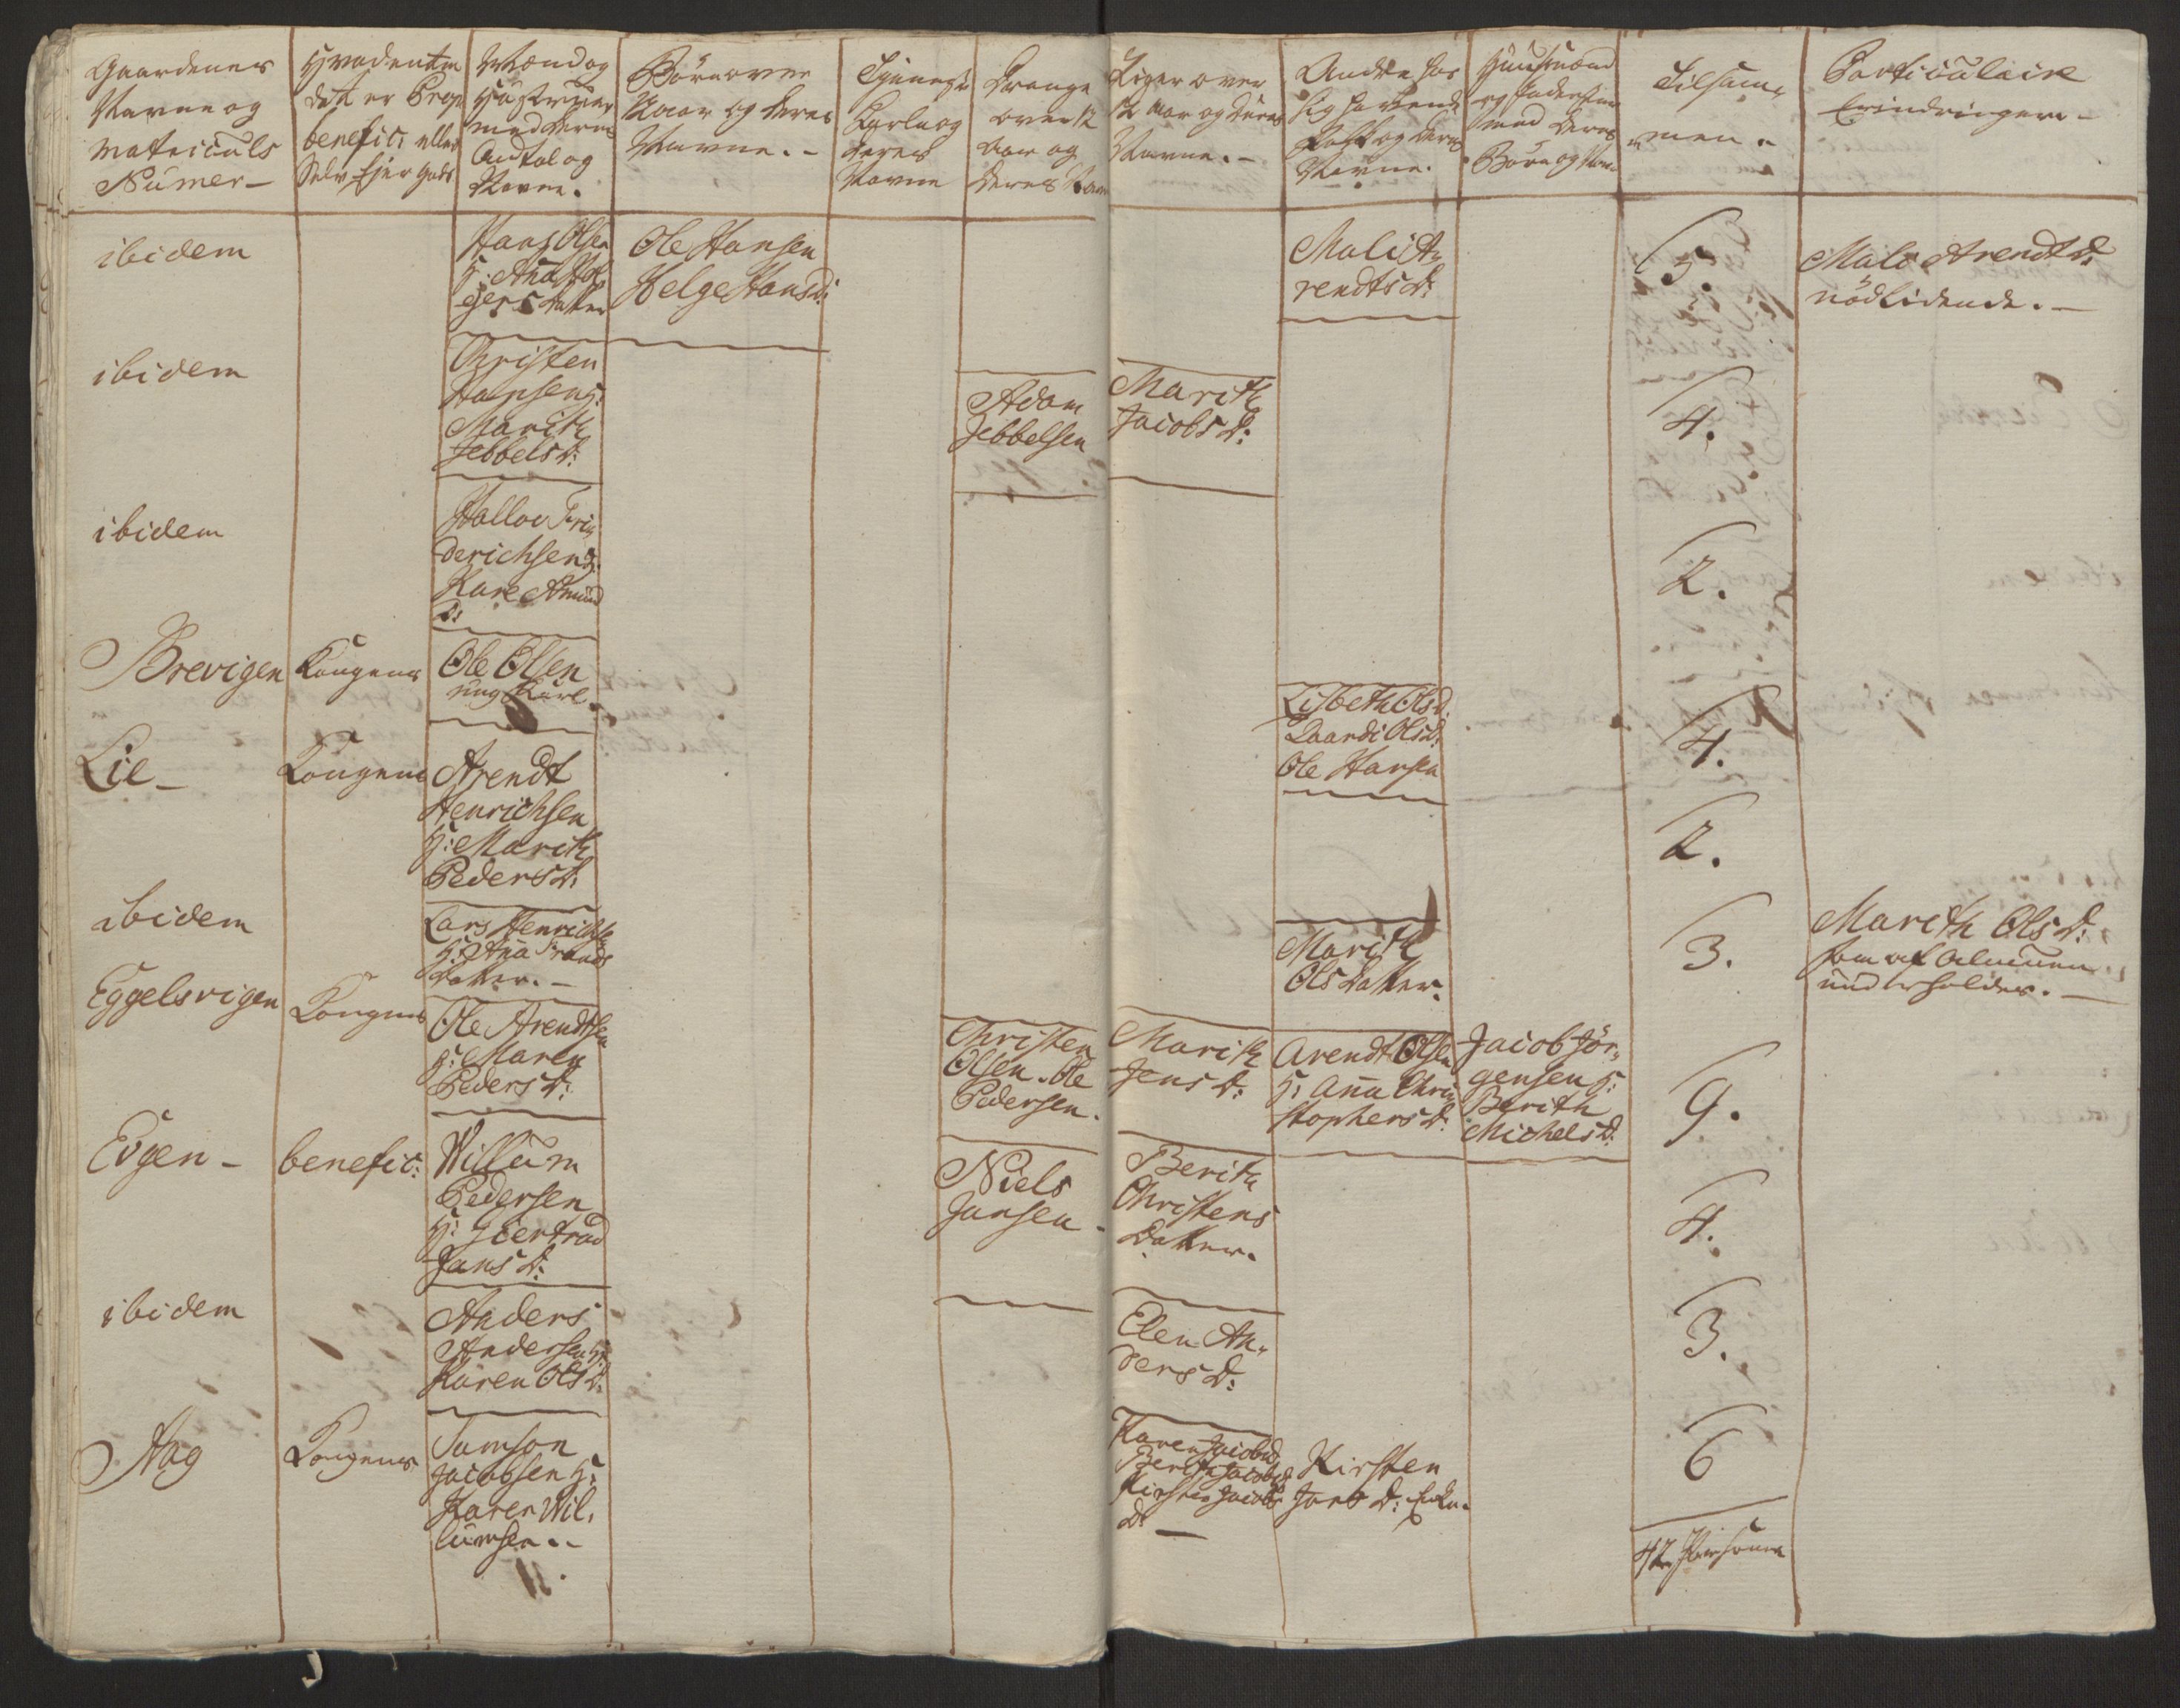 Gaardenes
Navne og
Matriculs
Numer-
Hvadenten
det er Prop
benefici eller
Selv Ejer gods
Mænd og
Hustruer
med deres
Antal og
Navne.
Børn over
12 Aar og deres
Navne.-
Tjeneste
Karle og
deres
Navne
Drenge
over 12
Aar og
deres Navn
Piger over
12 Aar og deres
Navne.-
Andre hos
sig havende
Folk og deres
Navne.
Huusmænd
og Inderster
med deres
Børn og Navn
Tilsam-
men.
Particulaire
Erindringer-
ibidem
Hans Olsen
H: Anna Hol
gers datter
Ole Hansen
Helge Hansd:
Mali A-
rendts D:
5.
Mali Arendt D:
nødlidende.-
ibidem
Christen
Hansen H:
Marith
Jebbels D:
Adam
Jebbelsen
Marith
Jacobs D:
4.
ibidem
Hallov Fri-
derichsen H:
Kare Amund
D:
2.
Brevigen
Kongens
Ole Olsen
ung Karl.
Lisbeth Ols D.
Olsd:
Ole Hansen
4.
Lie-
Kongens
Arendt
Henrichsen
H: Marith
Peders D:
2.
ibidem
Lars Henrichse
H: Anna
datter.-
Marith
Ols datter.
3.
Marith Ols D:
som af Almuen
underholdes.-
Eggelsvigen
Kongens
Ole Arendtsen
H: Maren
Peders D:
Christen
Olsen. Ole
Pedersen.
Marith
Jens D:
Arendt Olsen
H: Anna Chri-
stophers D:
Jacob Jør-
gensen H:
Berith
Michels D:
9.
Evgen-
benefic:
Willum
Pedersen
H: Giertrud
Jans D:
Niels
Jansen-
Berith
Christens
Datter.
4.
ibidem
Anders
Andersen H:
Karen Ols D:
Elen An-
ders D:
3.
Aag
Kongens
Samson
Jacobsen H:
Karen Wil-
lumsen.-
Karen Jacobsd
Berith Jacobsd
Kirsten Jacobs
D:-
Kirsten
Jans D: Enke.
6
42 Personer